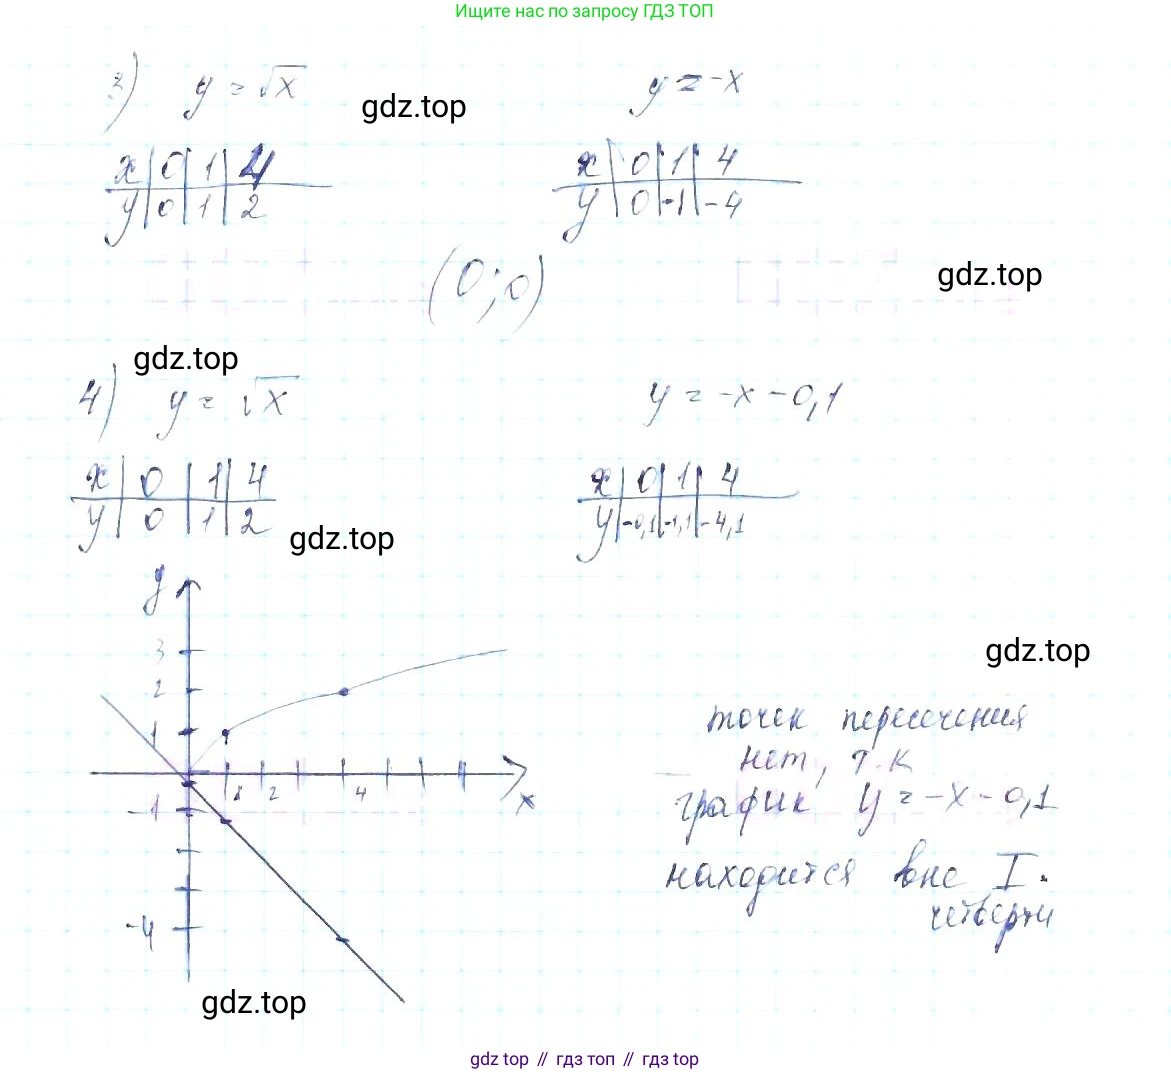 Ищите нас по запросу ГДЗ ТОП
3) y = √x
y = -x
gdz.top
x | 0 | 1 | 4
y | 0 | 1 | 2
x | 0 | 1 | 4
y | 0 | -1 | -4
(0;0)
gdz.top
gdz.top
4) y = √x
y = -x - 0,1
x | 0 | 1 | 4
y | 0 | 1 | 2
x | 0 | 1 | 4
y | -0,1 | -1,1 | -4,1
gdz.top
y
3
2
1
2
4
x
-1
-4
gdz.top
точек пересечения
нет, т.к
график y = -x - 0,1
находится вне I.
четверти
gdz.top
gdz top // гдз топ // гдз top